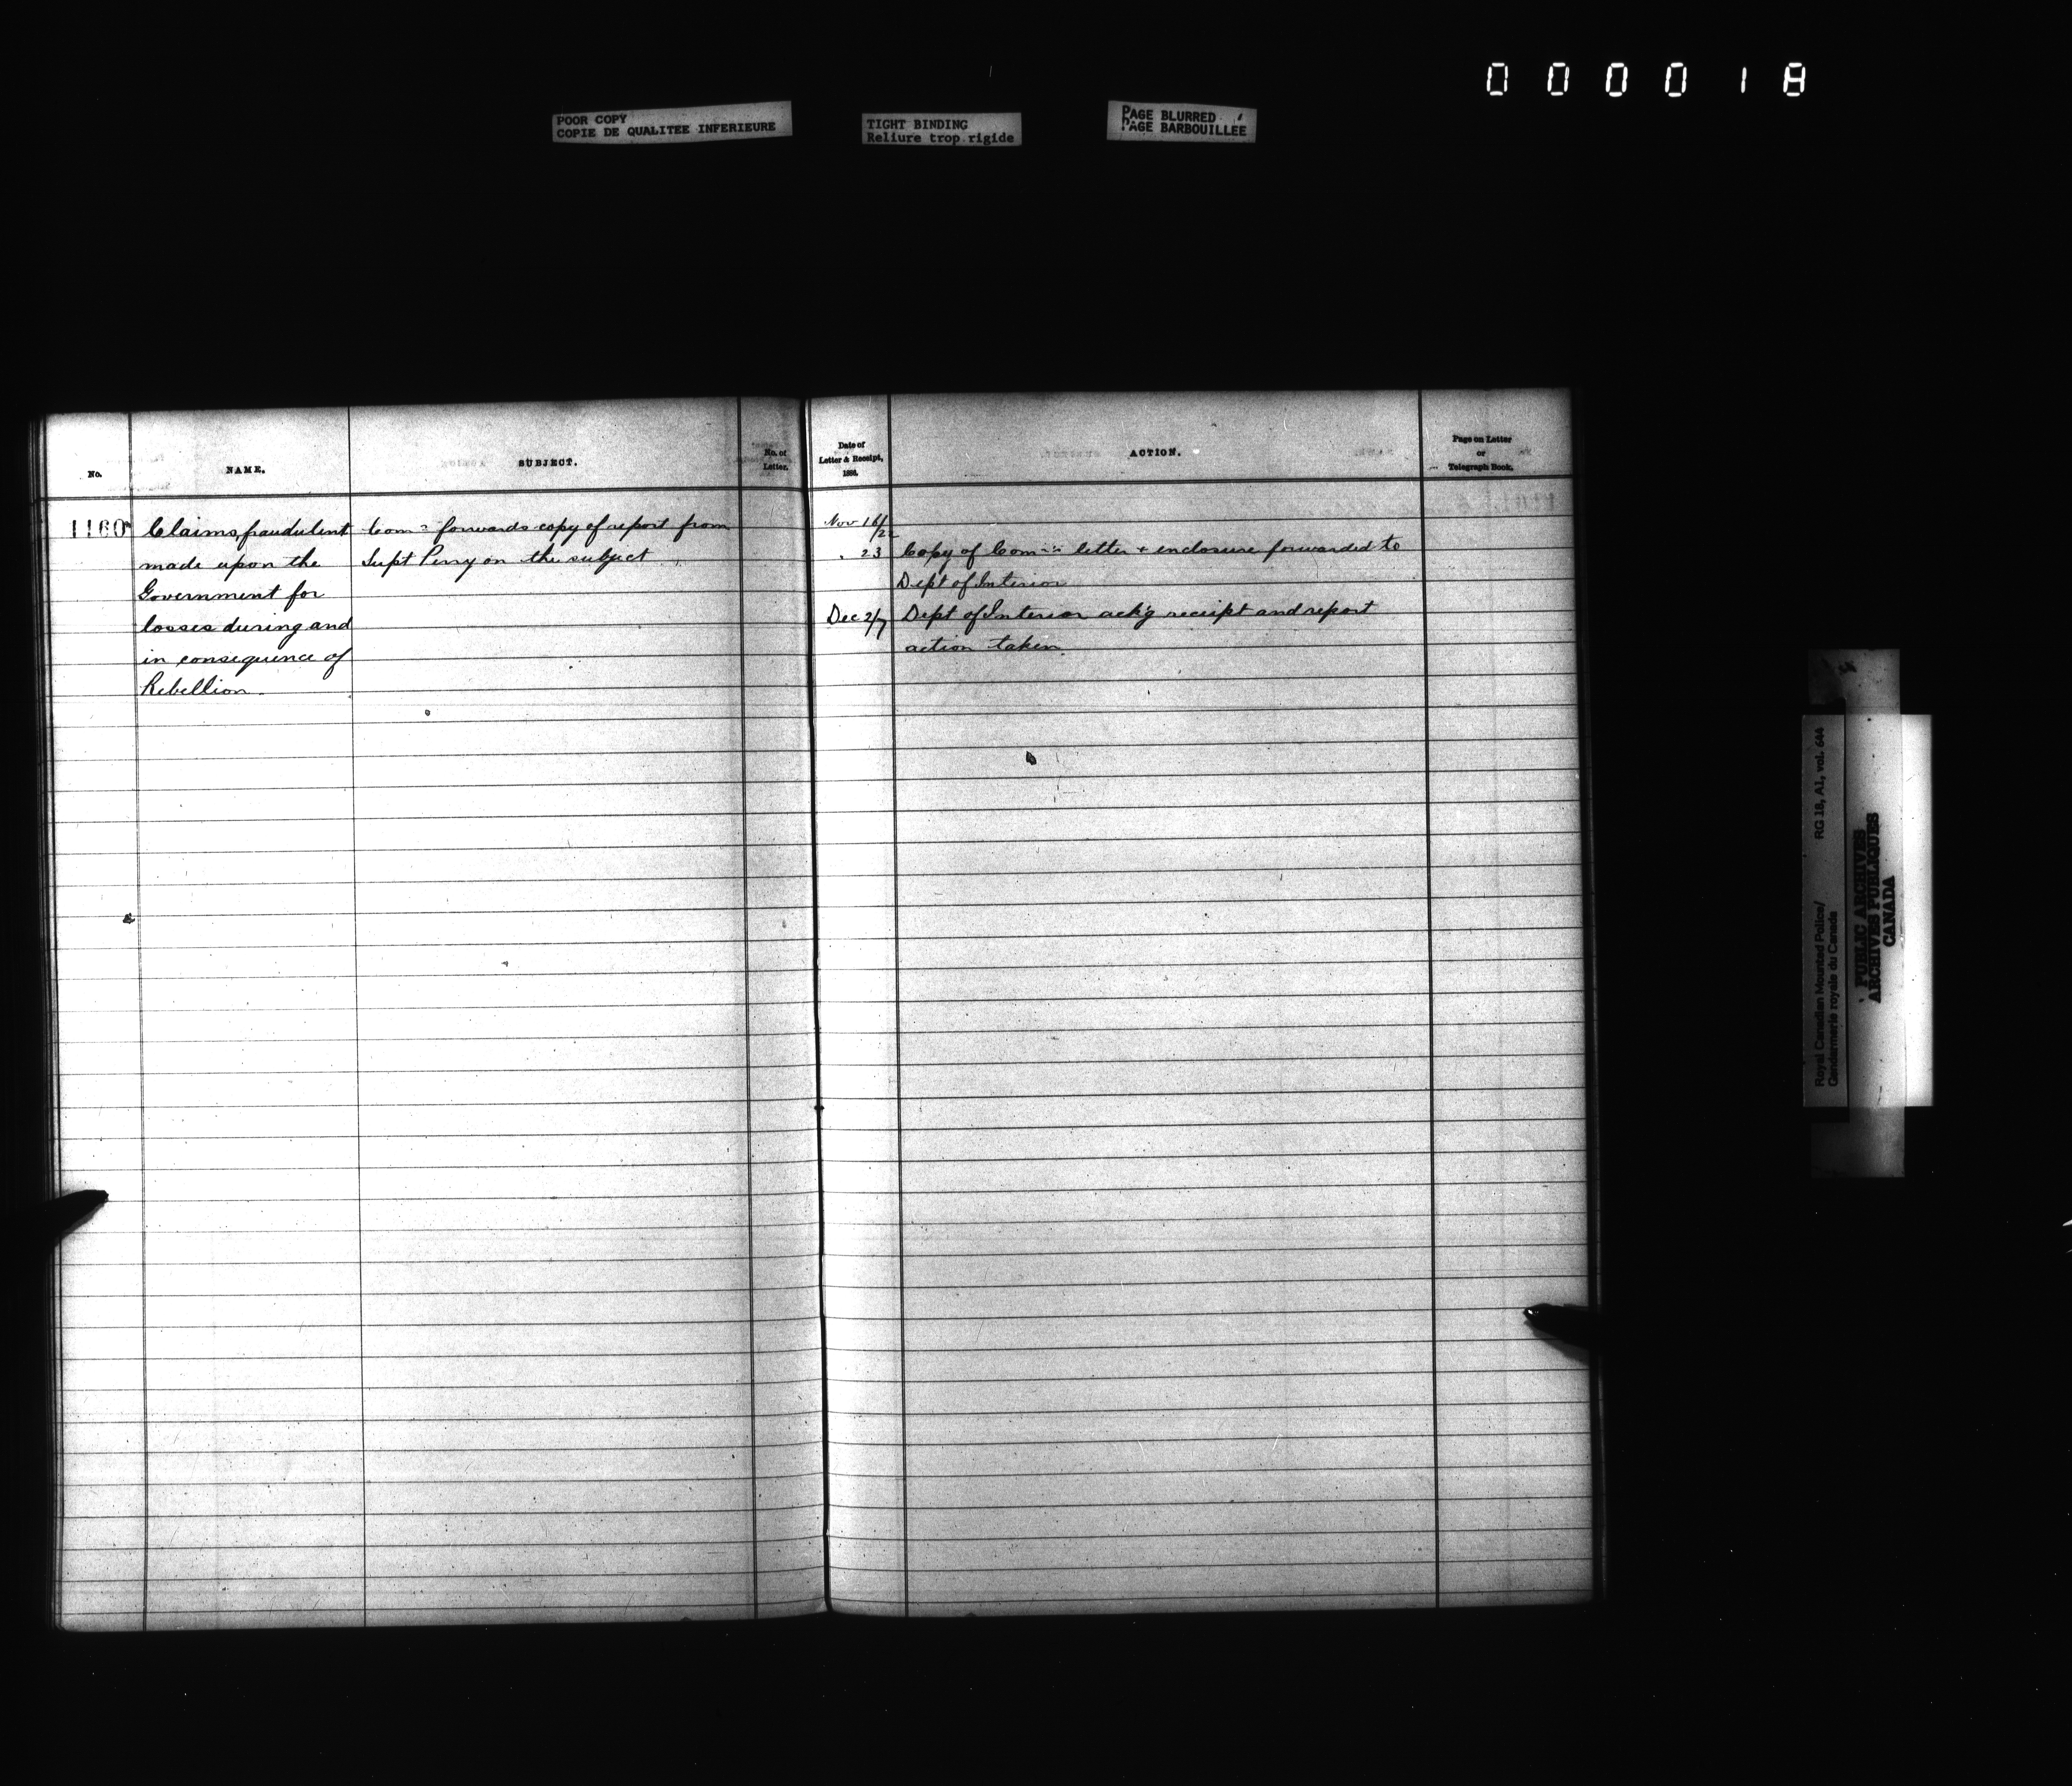 000018
POOR COPY
COPIE DE QUALITEE INFERIEURE
TIGHT BINDING
Reliure trop rigide
PAGE BLURRED
PAGE BARBOUILLEE
No.
NAME.
SUBJECT.
No. of
Letter.
Date of
Letter & Receipt,
188
ACTION.
Page on Letter
or
Telegraph Book.
1160
Claims, fraudulent
made upon the
Government for
losses during and
in consequence of
Rebellion.
Com r forwards copy of report from
Supt Perry on the subject
Nov 16/22
" 23 Copy of Com r's letter + enclosure forwarded to
Dept of Interior
Dec 2/7 Dept of Interior ack'g receipt and report
action taken.
Royal Canadian Mounted Police/
Gendarmerie royale du Canada
RG 18, A1, vol. 644
PUBLIC ARCHIVES
ARCHIVES PUBLIQUES
CANADA